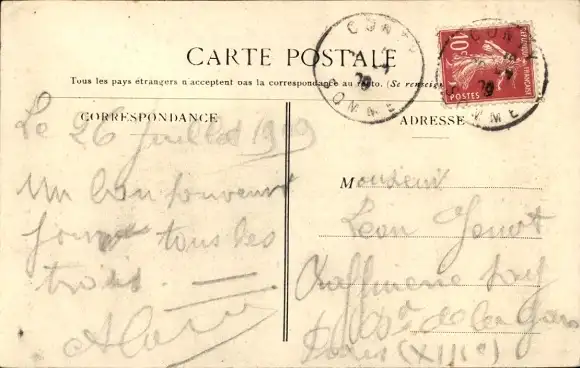 CARTE POSTALE
Tous les pays étrangers n'acceptent pas la correspondance au recto. (Se renseigner
CORRESPONDANCE
ADRESSE
CONTY
SOMME
10
POSTES
CONTY
SOMME
Le 26 Juillet 1909
Un bon souvenir
pour tous les
trois.
Monsieur
Léon
Raffinerie
Bd de la Gare
Paris (XIIIe)